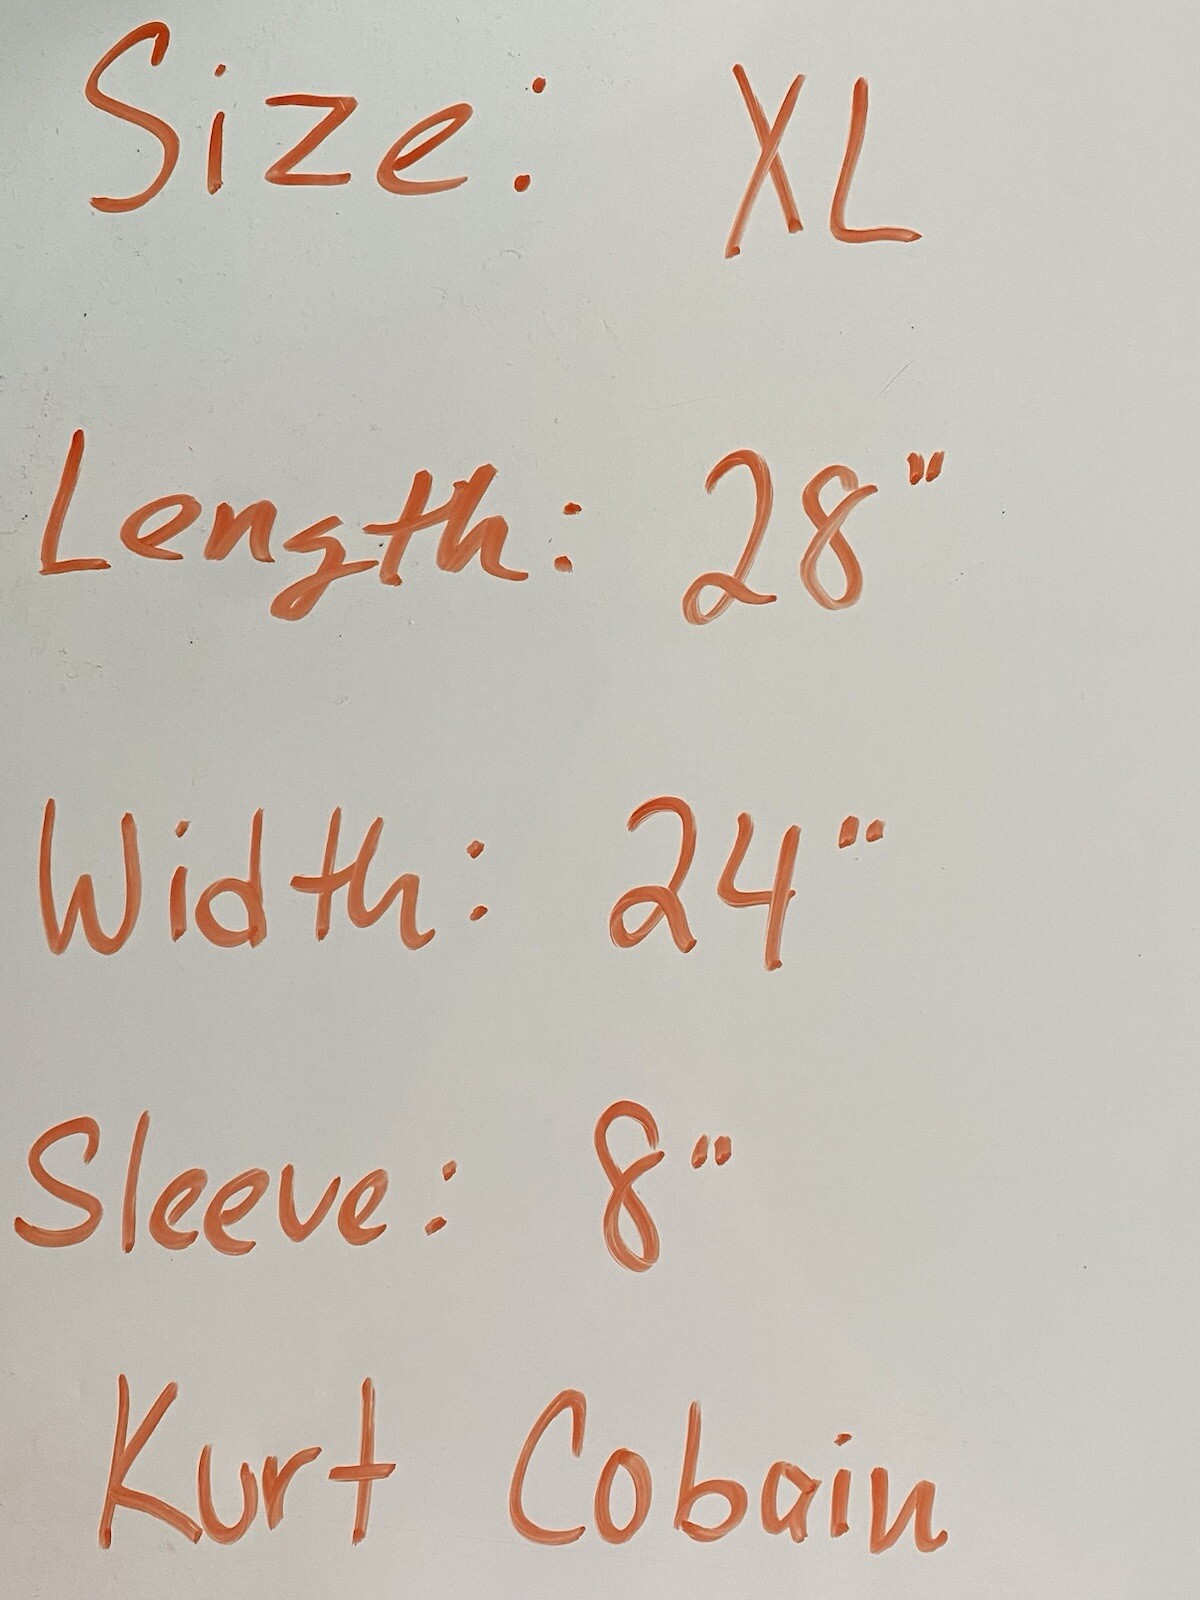 Size: XL
Length: 28"
Width: 24"
Sleeve: 8"
Kurt Cobain